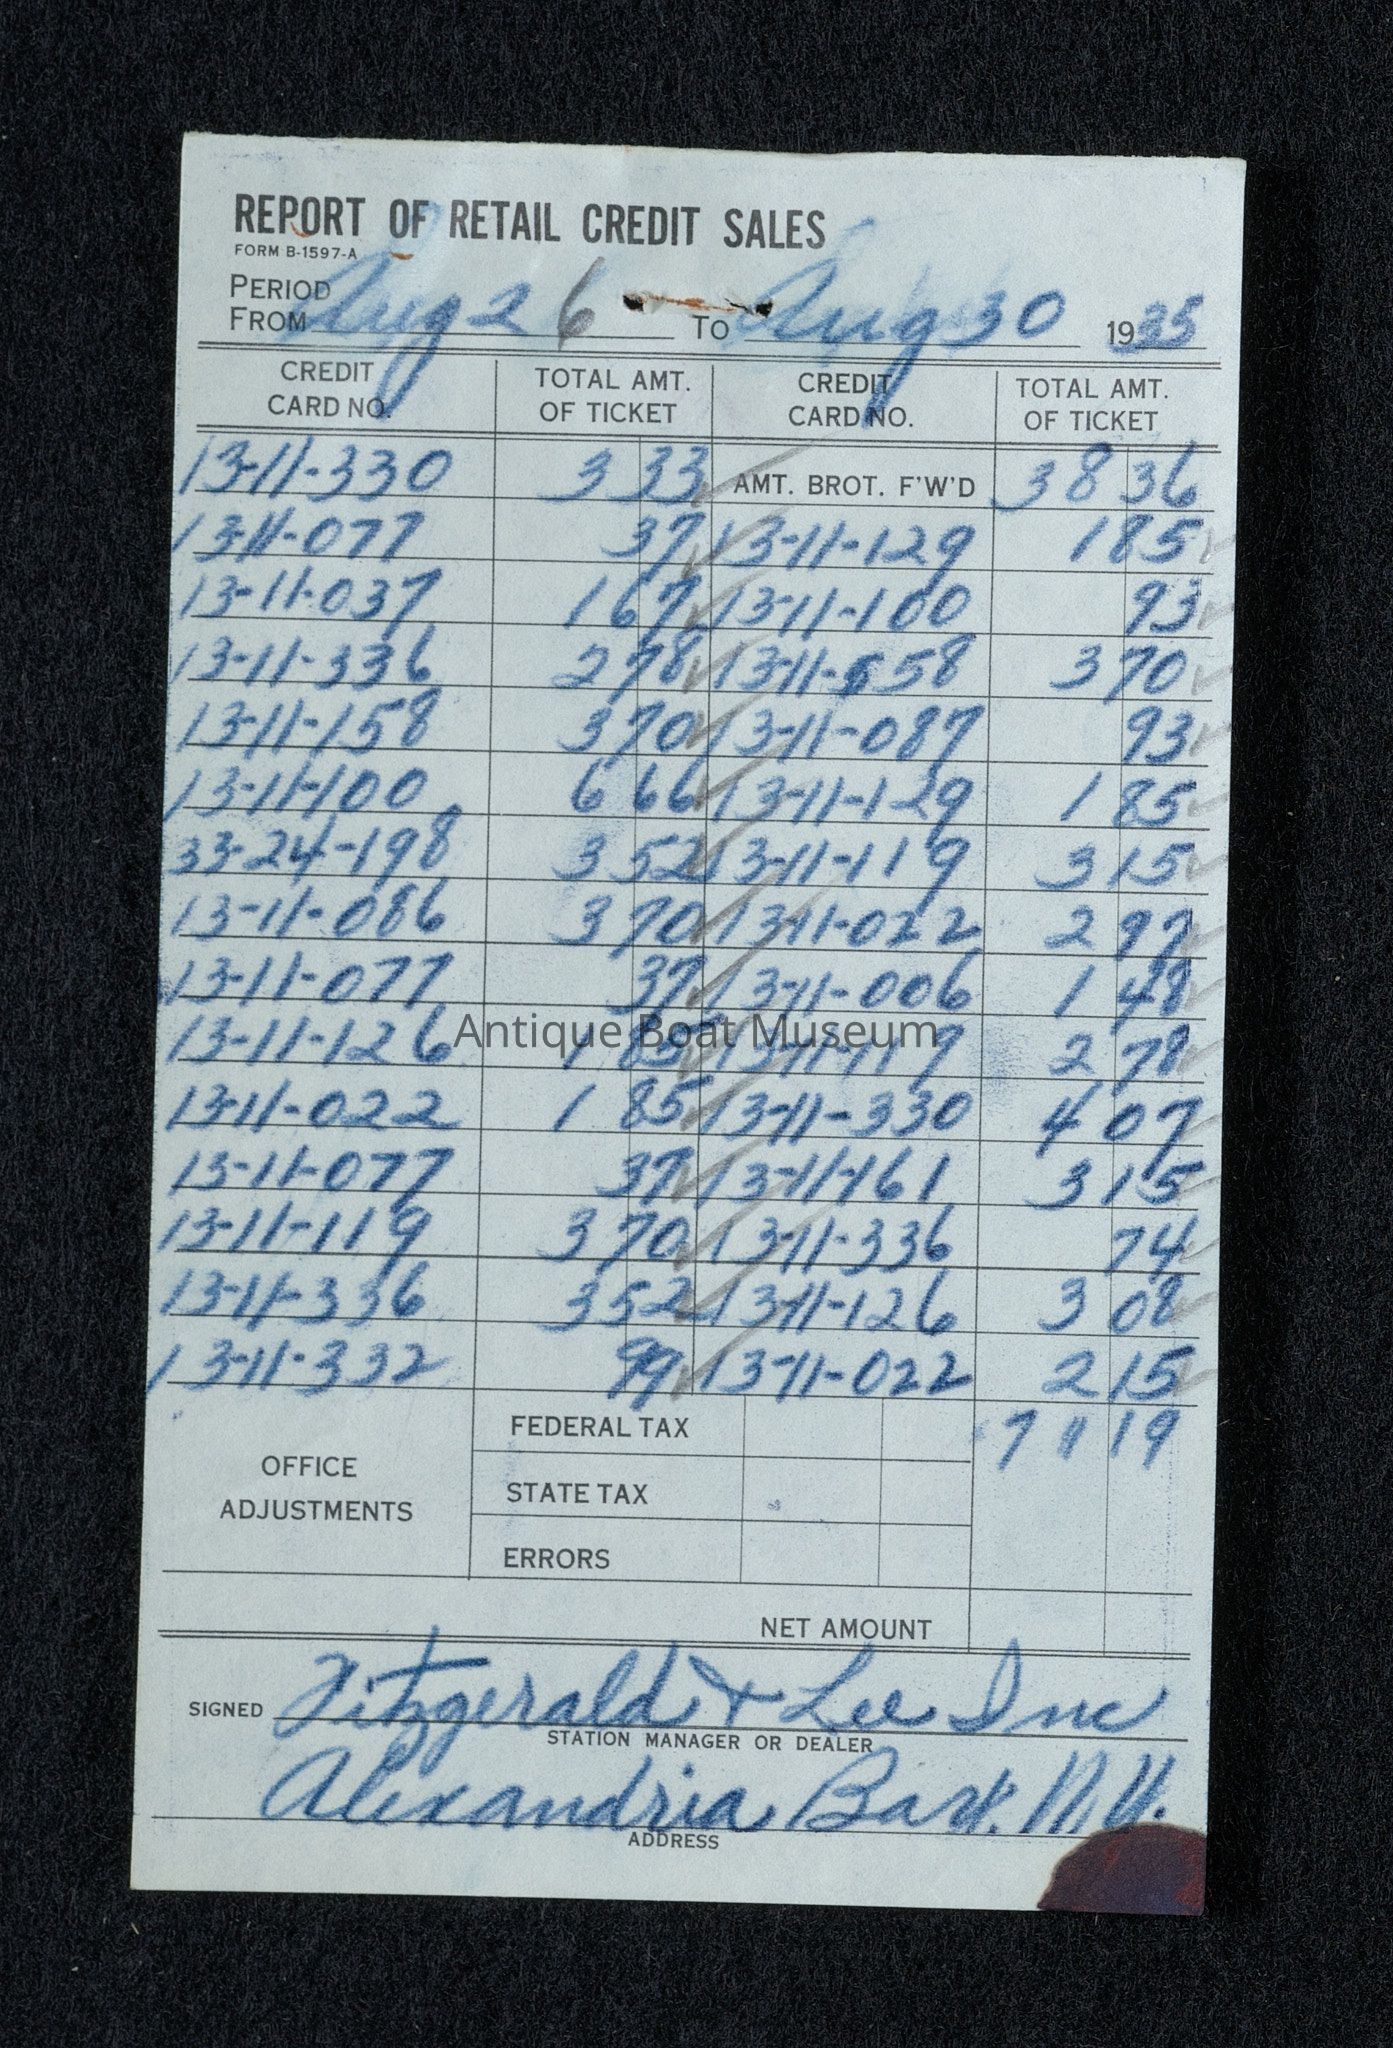 REPORT OF RETAIL CREDIT SALES
FORM B-1597-A
PERIOD
FROM Aug 26 TO Aug 30 1935
CREDIT CARD NO. TOTAL AMT. OF TICKET CREDIT CARD NO. TOTAL AMT. OF TICKET
13-11-330 3 33 AMT. BROT. F'W'D 38 36
13-11-077 37 13-11-129 1 85
13-11-037 1 67 13-11-100 93
13-11-336 2 78 13-11-558 3 70
13-11-158 3 70 13-11-087 93
13-11-100 6 66 13-11-129 1 85
33-24-198 3 52 13-11-119 3 15
13-11-086 3 70 13-11-022 2 97
13-11-077 37 13-11-006 1 48
13-11-126 1 85 13-11-119 2 78
13-11-022 1 85 13-11-330 4 07
13-11-077 37 13-11-161 3 15
13-11-119 3 70 13-11-336 74
13-11-336 3 52 13-11-126 3 08
13-11-332 99 13-11-022 2 15
OFFICE ADJUSTMENTS
FEDERAL TAX 71 19
STATE TAX
ERRORS
NET AMOUNT
SIGNED Fitzgerald & Lee Inc
STATION MANAGER OR DEALER
Alexandria Bay. N.Y.
ADDRESS
Antique Boat Museum